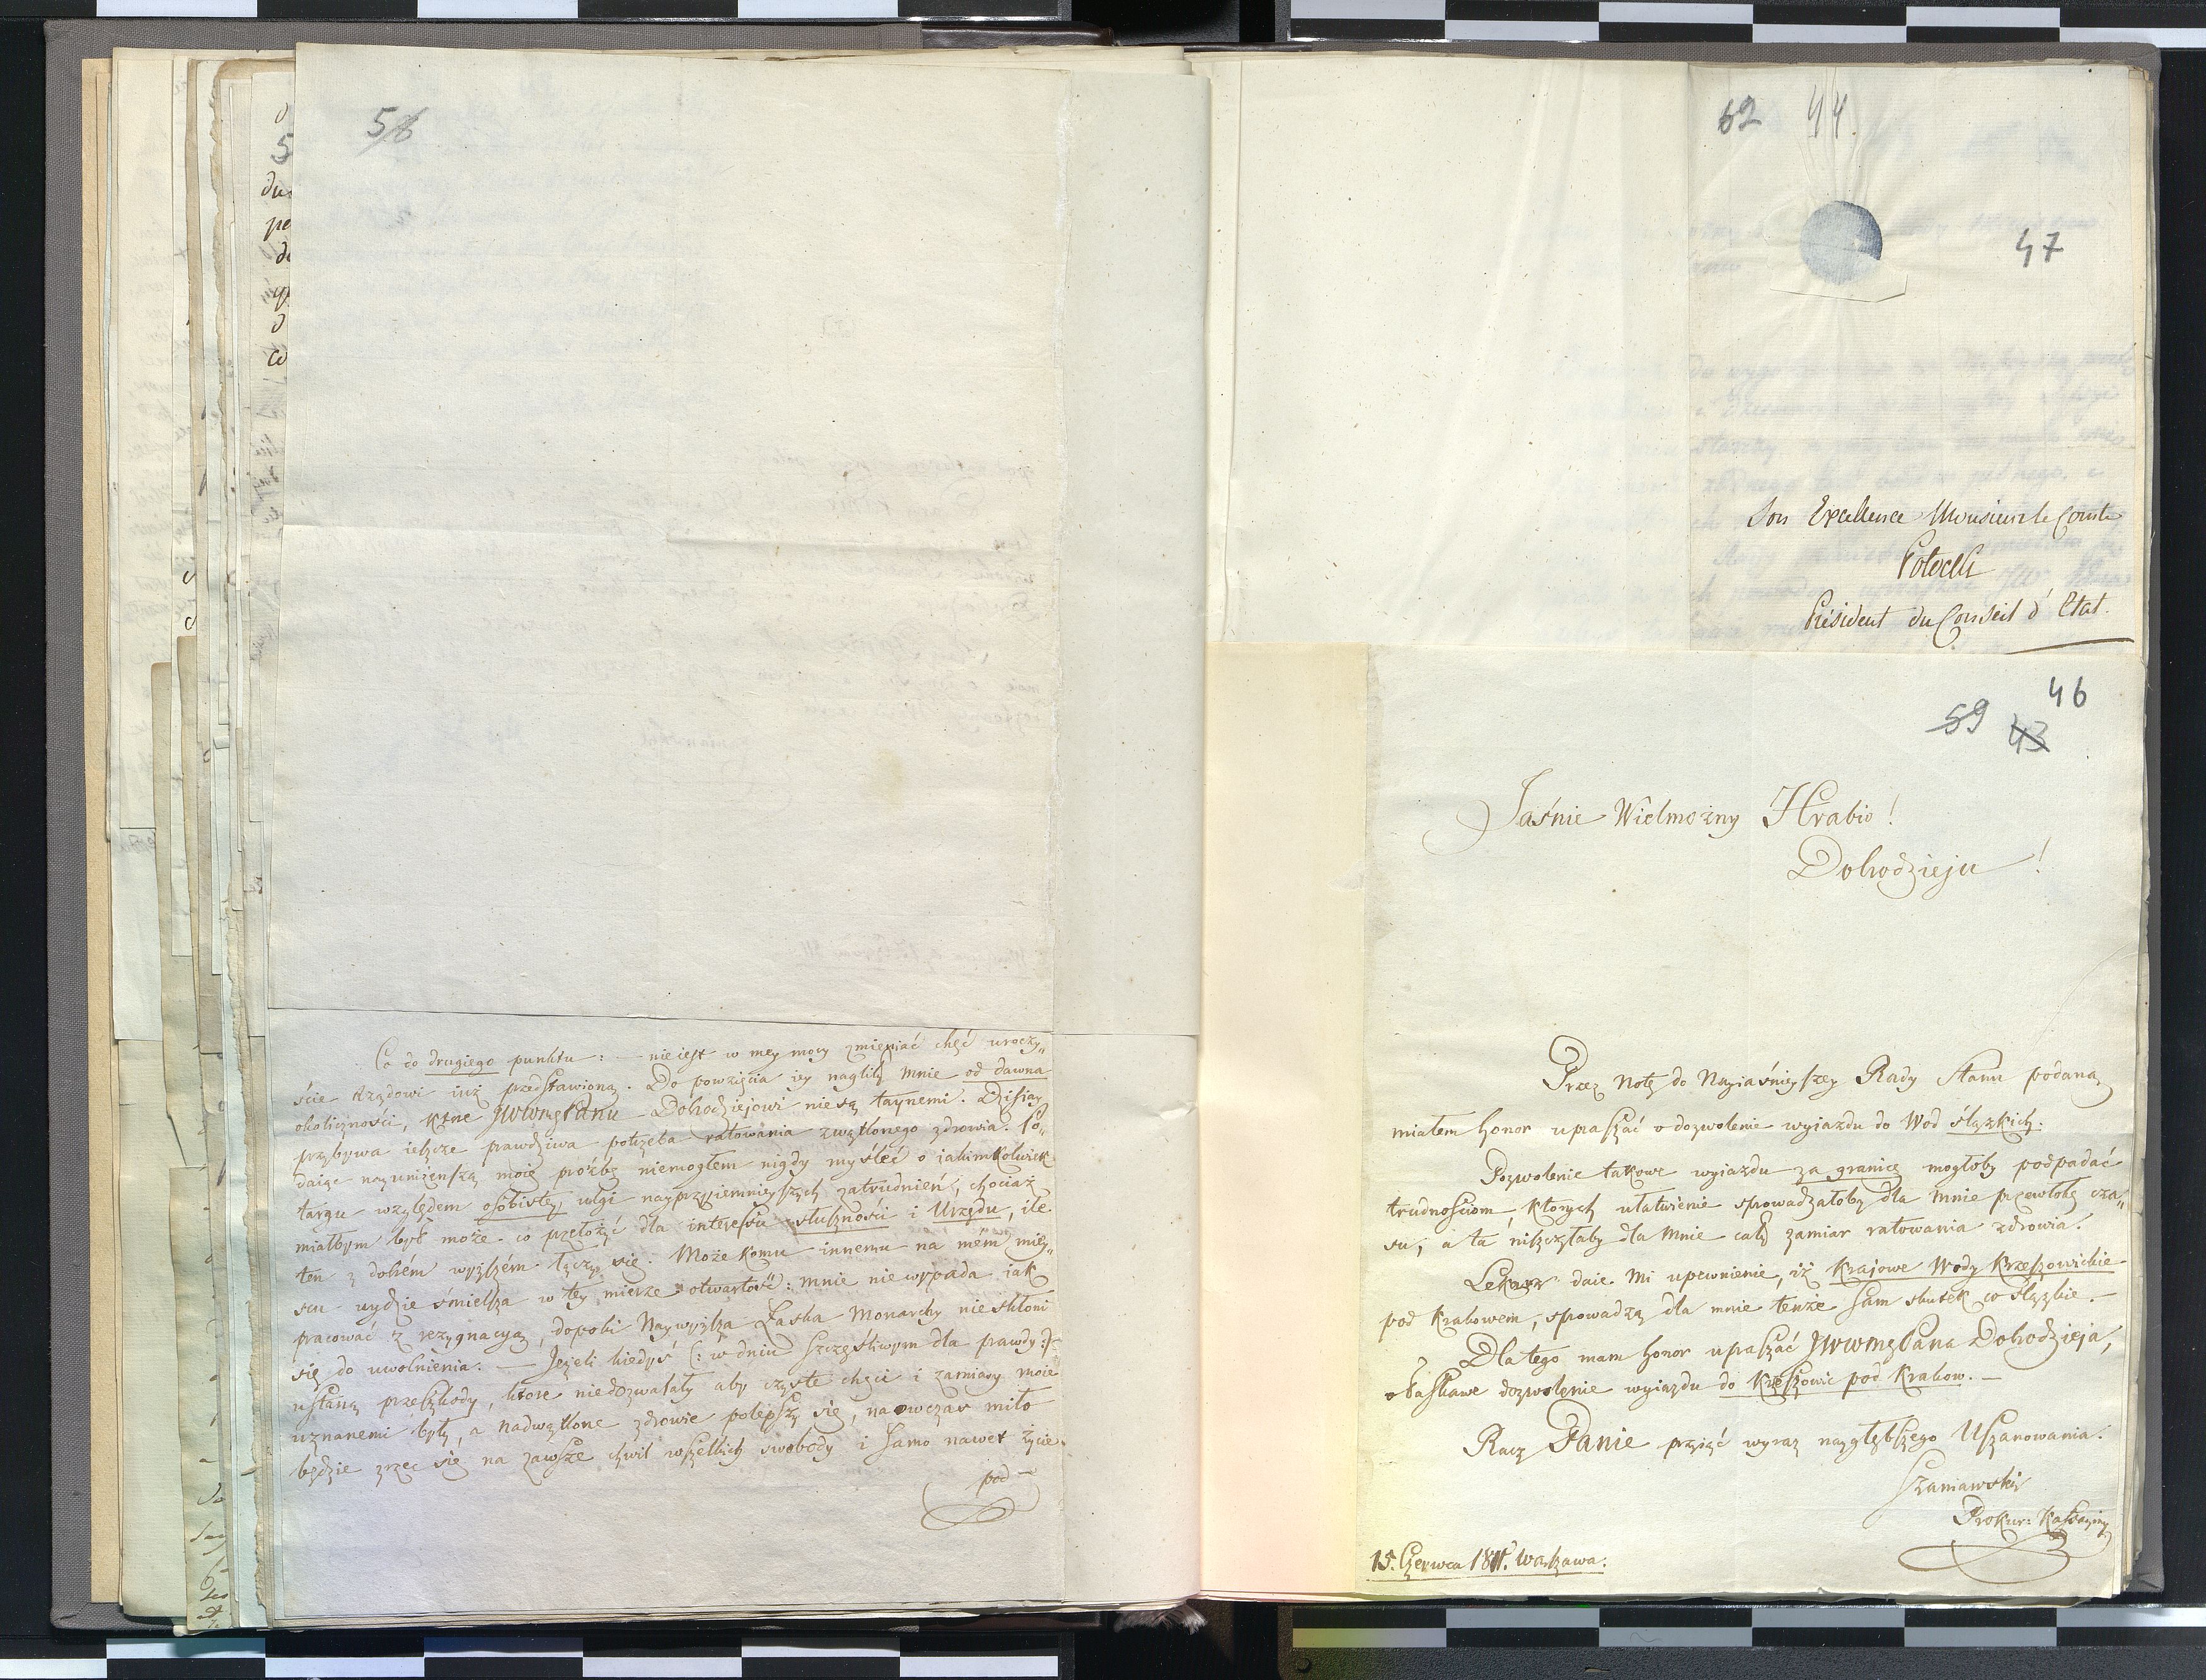 56
Co do drugiego punktu: — nie iest w mey mocy zmieniać chęć uroczy„
ście Rządowi iuż przedstawioną. Do powzięcia iey nagliły mnie od dawna
okoliczności, które JWWmgPanu Dobrodziejowi nie są taynemi. Dzisiay
przybywa ieszcze prawdziwa potrzeba ratowania zwątlonego zdrowia. Po„
daiąc nayuniżeńszą moię prośbę niemogłem nigdy myśleć o iakimkolwiek
targu względem osobistey ulgi nayprzyiemnieyszych zatrudnień, chociaż
miałbym być może co przełożyć dla interessu słuszności i Urzędu, ile
ten z dobrém wyższém łączy się. Może komu innemu na mém miey„
scu uydzie śmielsza w tey mierze otwartość: mnie nie wypada iak
pracować z rezygnacyą, dopoki Naywyższa Łaska Monarchy nie skłoni
się do uwolnienia. — Jeżeli kiedyś (: w dniu szczęśliwym dla prawdy :)
ustaną przeszkody, ktore niedozwalały aby czyste chęci i zamiary moie
uznanemi były, a nadwątlone zdrowie polepszy się, naowczas miło
będzie zrzec się na zawsze chwil wszelkich swobody i samo nawet życie
pod —
62 44.
47
Son Excellence Monsieur le Comte
Potocki
Président du Conseil d'Etat.
46
59 43
Jaśnie Wielmożny Hrabio!
Dobrodzieju!
Przez Notę do Nayiaśnieyszey Rady Stanu podaną
miałem honor upraszać o dozwolenie wyiazdu do Wod śląskich.
Pozwolenie takowe wyiazdu za granicę mogłoby podpadać
trudnościom, ktorych ułatwienie sprowadzałoby dla mnie przewłokę cza„
su, a ta niszczyłaby dla mnie cały zamiar ratowania zdrowia.
Lekarz daie mi upewnienie, iż Kraiowe Wody Krzeszowickie
pod Krakowem, sprowadzą dla mnie tenże sam skutek co Śląskie. —
Dla tego mam honor upraszać JWWmgPana Dobrodzieja,
o łaskawe dozwolenie wyiazdu do Krzeszowic pod Krakow. —
Racz Panie przyiąć wyraz nayglębszego Uszanowania.
Szaniawski
Prokur: Kassacyiny
15. Czerwca 1811. Warszawa.